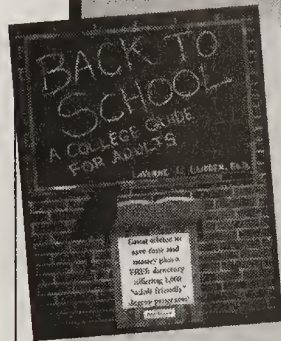 BACK TO
SCHOOL
A COLLEGE GUIDE
FOR ADULTS
LAVERNE L. Ed.D.
Great advice to
save time and
money plus a
FREE directory
offering 1,000
"adult friendly"
degree programs!